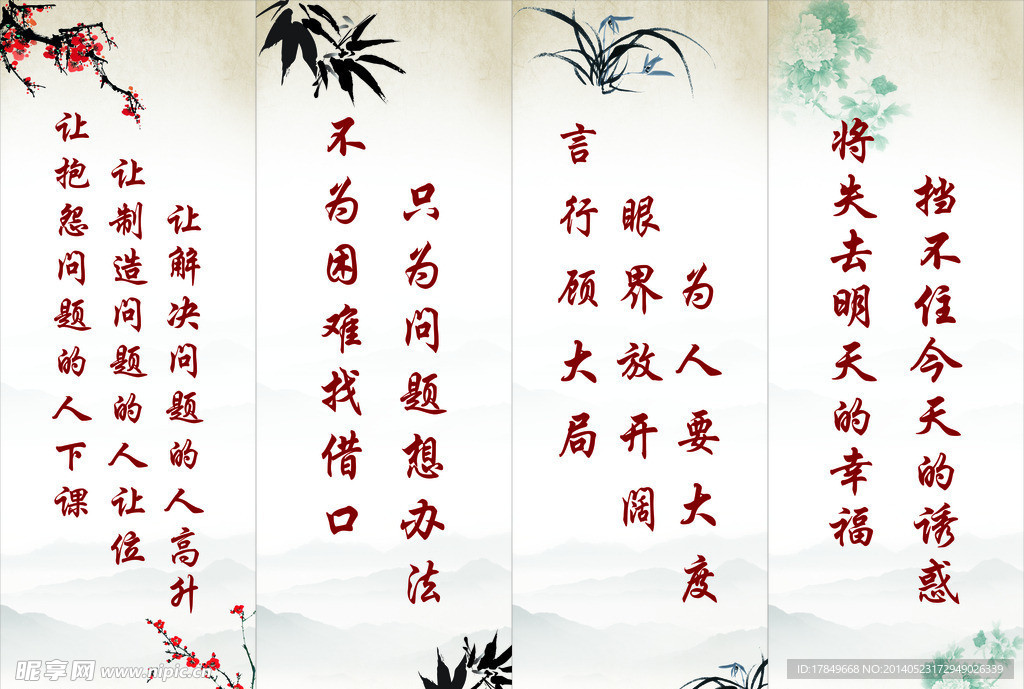 让抱怨问题的人下课
让制造问题的人让位
让解决问题的人高升
不为困难找借口
只为问题想办法
言行顾大局
眼界放开阔
为人要大度
将失去明天的幸福
挡不住今天的诱惑
昵享网 www.nipic.cn
ID:17849668 NO:20140523172949026339